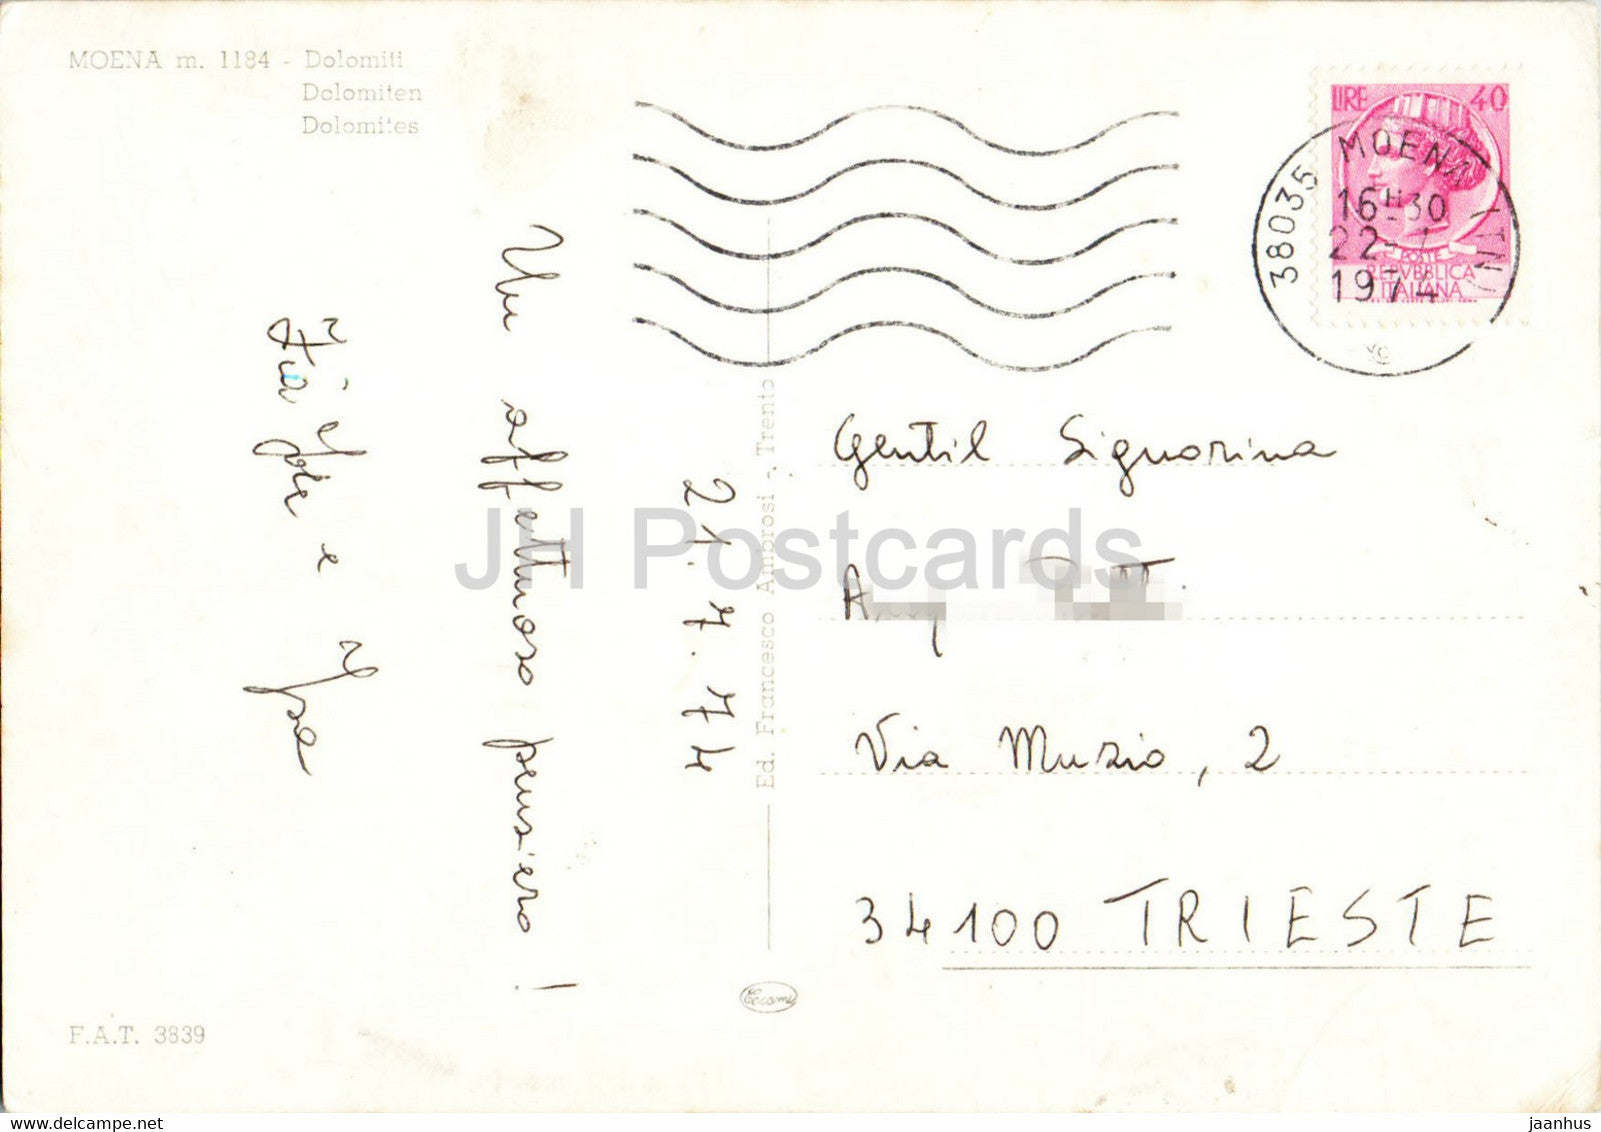 MOENA m. 1184 - Dolomiti
Dolomiten
Dolomites
LIRE 40
POSTE
REPVBBLICA
ITALIANA
38035 MOENA (TN)
16H30
22-7
1974
21.7.74
Un affettuoso pensiero!
Zia Jole e
Ed. Francesco Ambrosi - Trento
Gentil Signorina
Via Muzio, 2
34100 TRIESTE
F.A.T. 3839
JH Postcards
delcampe.net
jaanhus